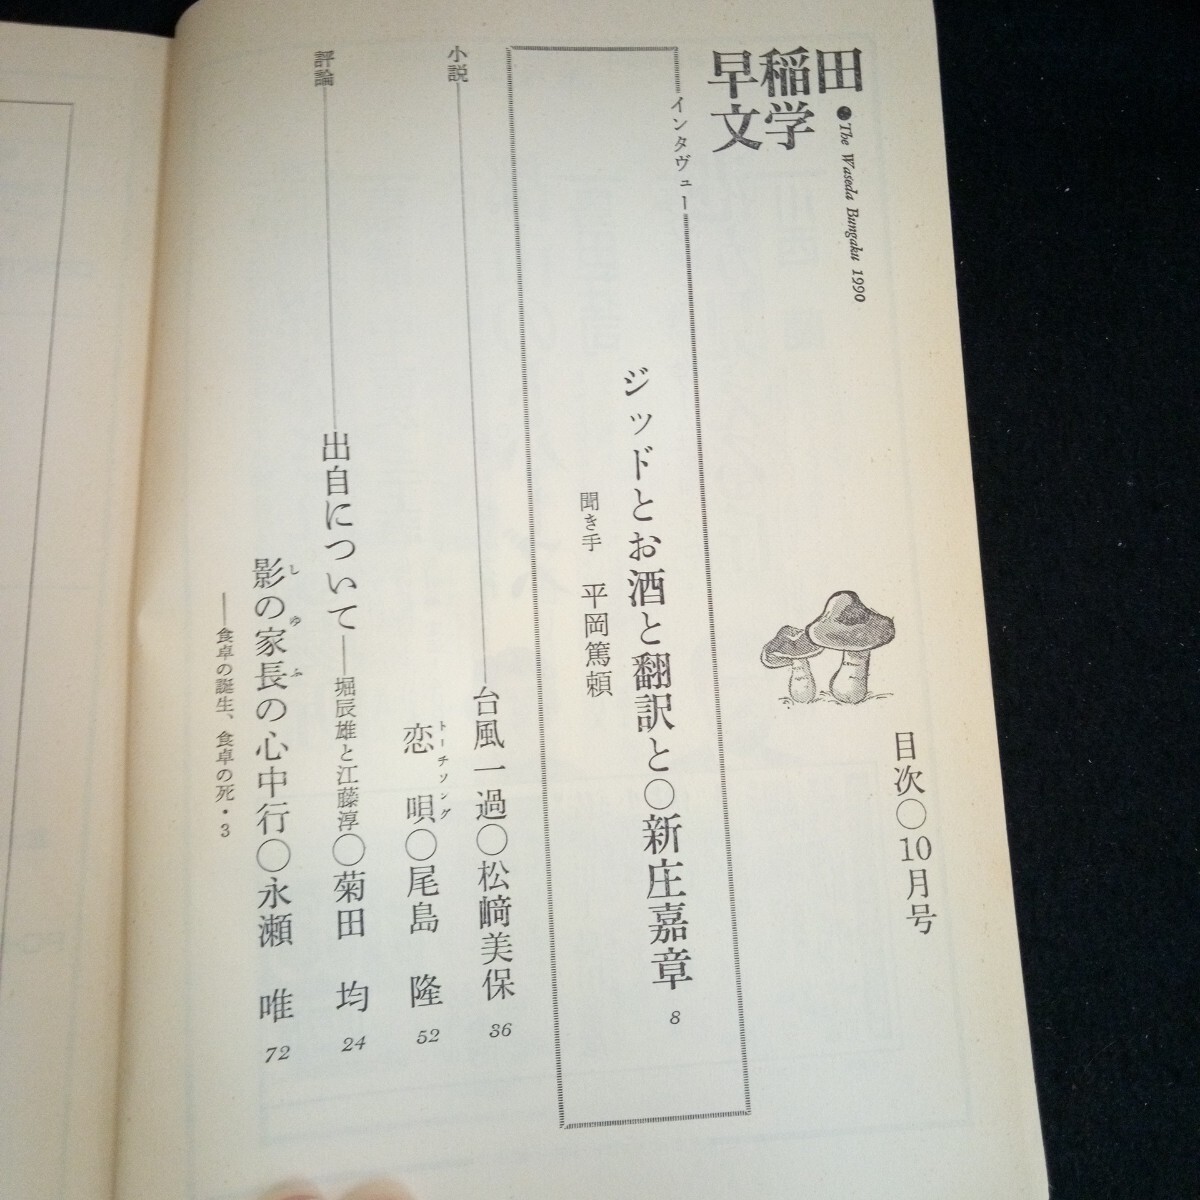 早稲田
文学
●The Waseda Bungaku 1990
目次○10月号
インタヴュー
ジッドとお酒と翻訳と○新庄嘉章 8
聞き手 平岡篤頼
小説
台風一過○松﨑美保 36
恋唄○尾島 隆 52
トーチソング
評論
出自について——堀辰雄と江藤淳○菊田 均 24
影の家長の心中行○永瀬 唯 72
しゆふ
——食卓の誕生、食卓の死・3